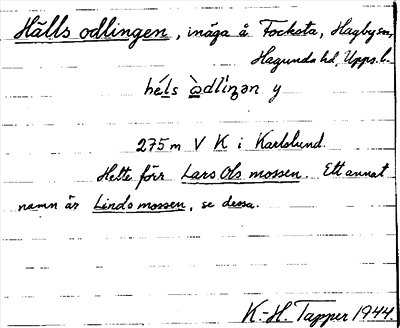 Hälls odlingen, inäga å Focksta, Hagby sn,
Hagunda hd, Upps. l.
275 m V K i Karlslund.
Hette förr Lars Ols mossen. Ett annat
namn är Linds mossen, se dessa.
K.-H. Tapper 1944.